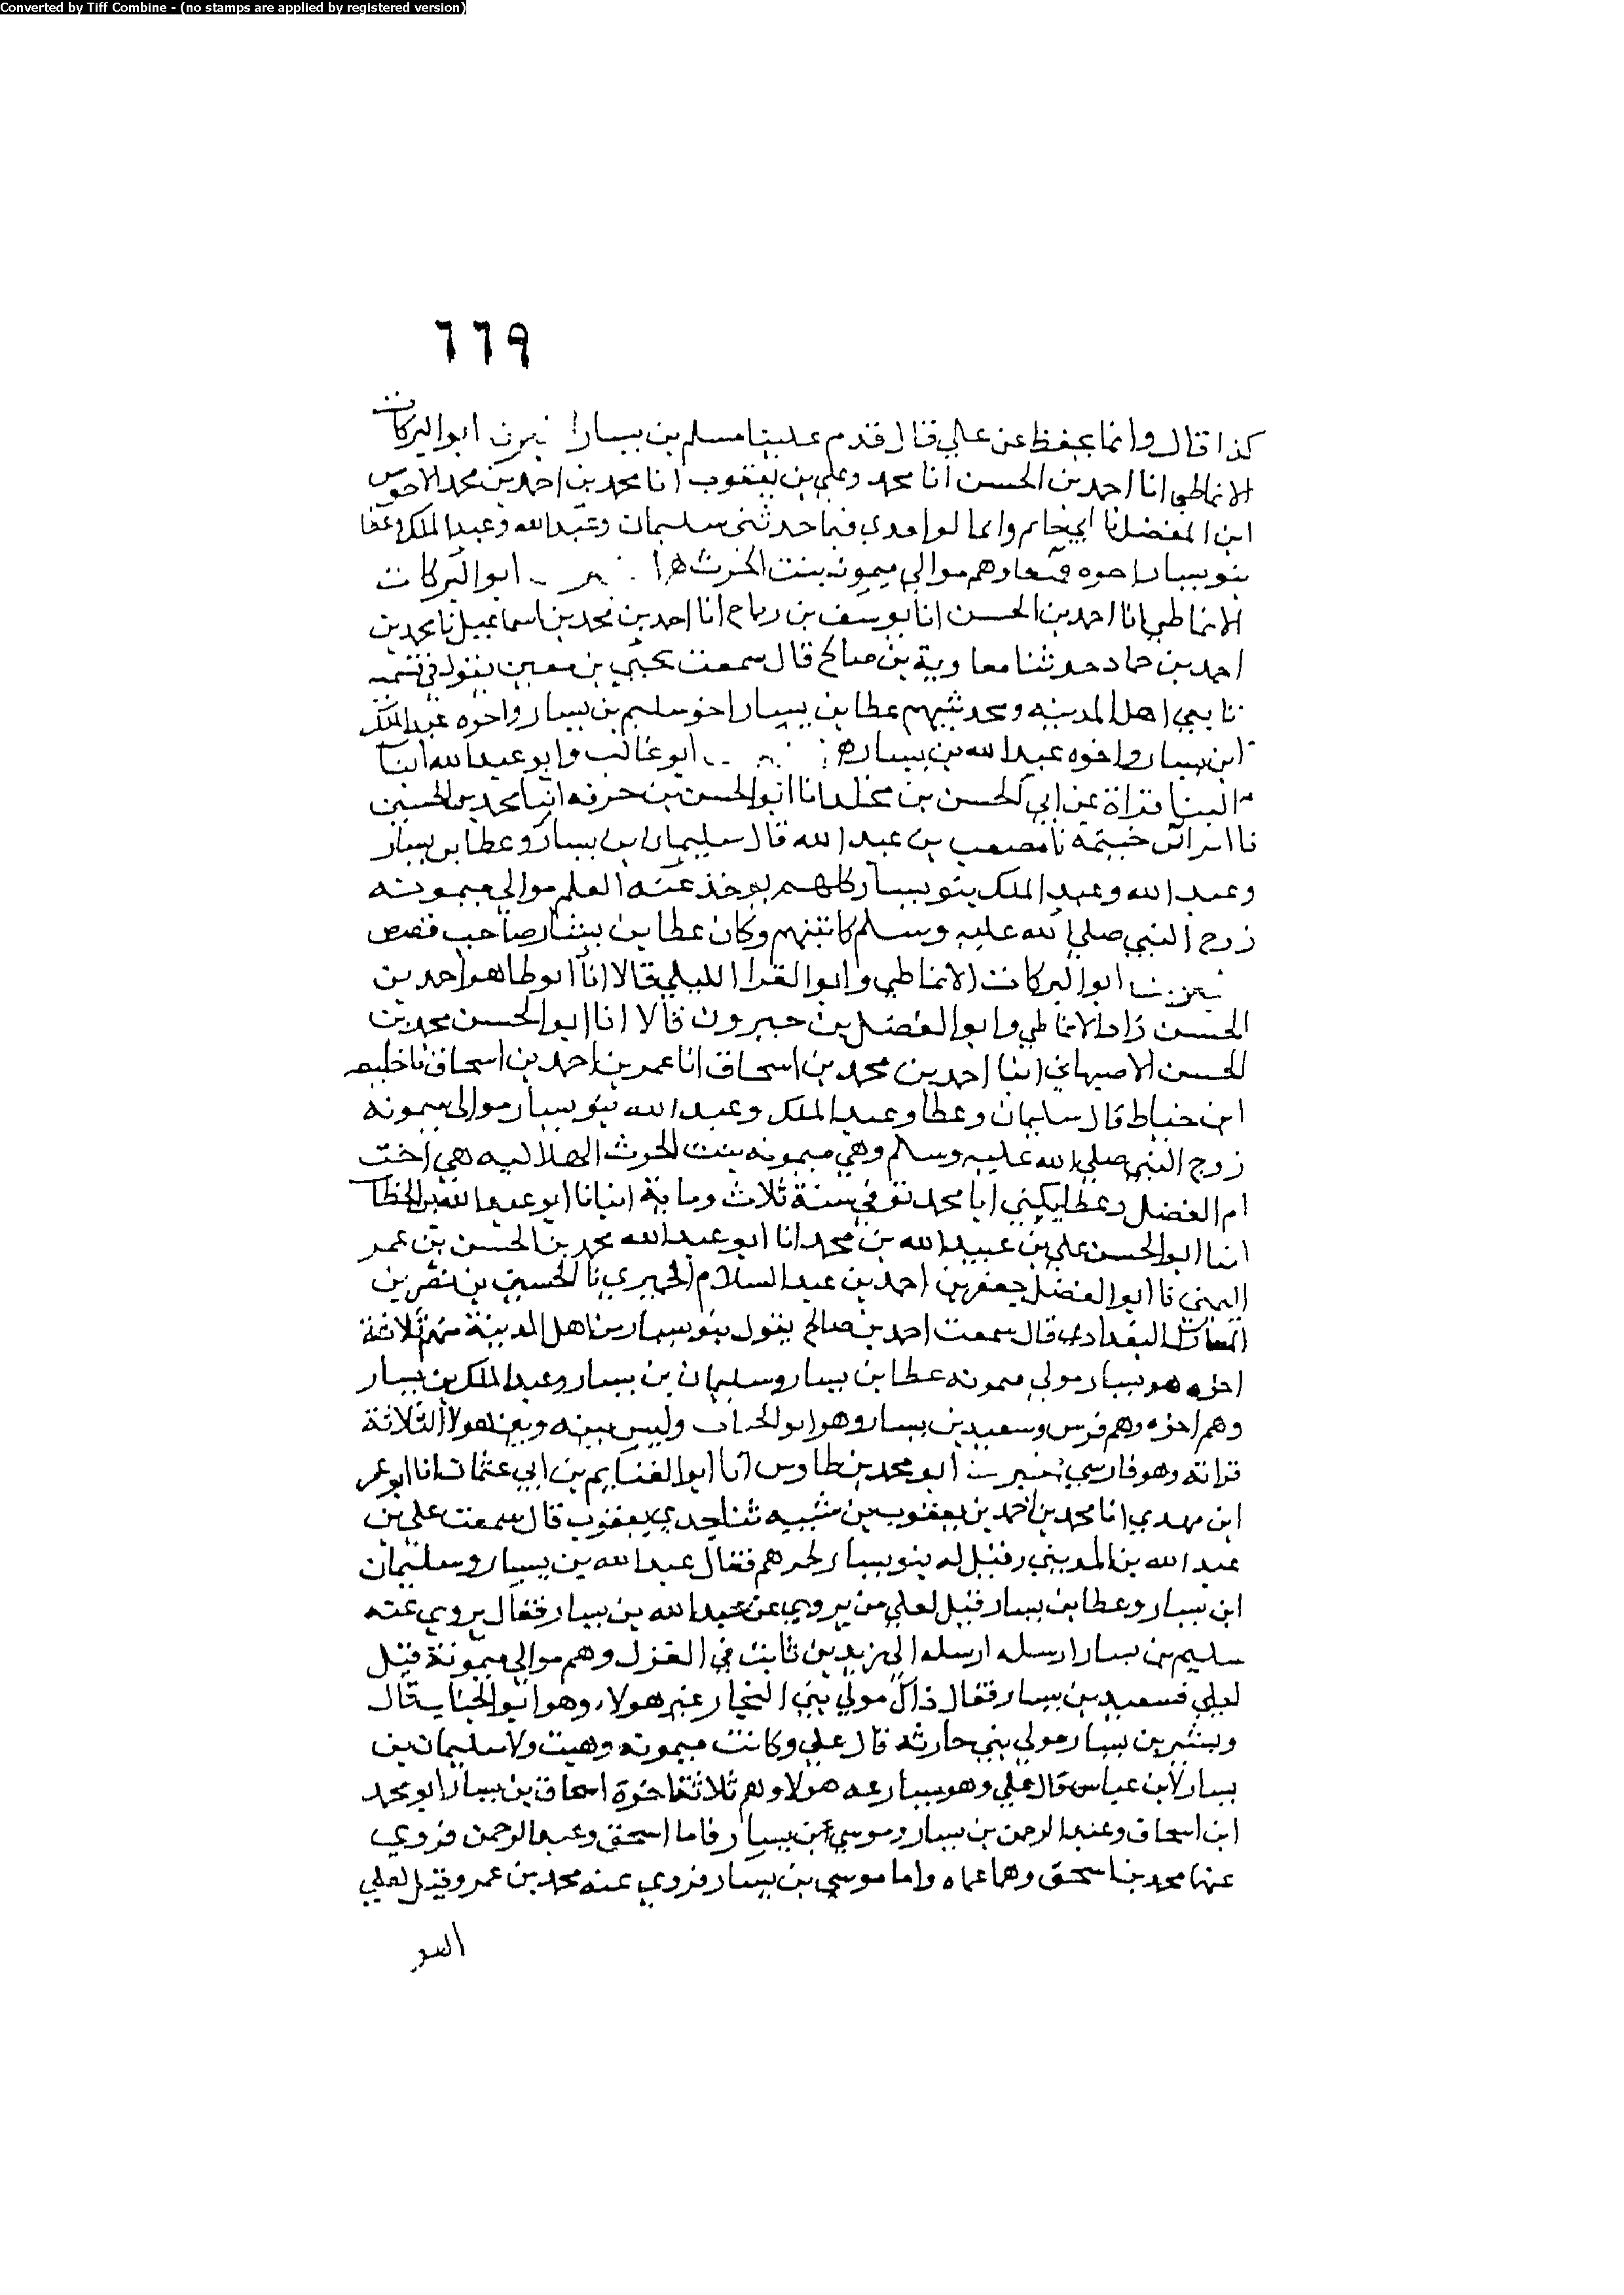 Converted by Tiff Combine - (no stamps are applied by registered version)
٦٦٩
كذا قال وانما يحفظ عن علي قال قدم علينا مسلم بن يسار ابو البركات
الانماطي انا احمد بن الحسن انا محمد وعلي بن يعقوب انا محمد بن احمد بن محمد الاحوص
ابن المفضل نا ابي لوامدي فيما حدثني سليمان وعبد الله وعبد الملك وعطا
بنو يسار اخوه وهم موالي ميمونه بنت الحرث ابو البركات
الانماطي انا احمد بن الحسن انا يوسف بن رباح انا احمد بن محمد بن اسماعيل نا محمد بن
احمد بن حماد حدثنا معاوية بن صالح قال سمعت يحيي بن معين يقول في تسميه
تابعي اهل المدينه ومحدثيهم عطا بن يسار اخو سليم بن يسار واخوه عبد الملك
ابن يسار واخوه عبد الله بن يسار ابو غالب وابو عبد الله ابنا
البنا قراة عن ابي الحسن بن مخلد انا ابو الحسن بن خزفه انبا محمد بن الحسين
نا ابن ابي خيثمه نا مصعب بن عبد الله قال سليمان بن يسار وعطا بن يسار
وعبد الله وعبد الملك بنو يسار كلهم يوخذ عنه العلم موالي ميمونه
زوج النبي صلي الله عليه وسلم كاتبتهم وكان عطا بن يسار صاحب قصص
ابو البركات الانماطي وابو العز الليلي قالا انا ابو طاهر احمد بن
الحسن زاد الانماطي وابو الفضل بن خيرون قالا انا ابو الحسن محمد بن
الحسن الاصبهاني انبا احمد بن محمد بن اسحاق انا عمر بن احمد بن اسحاق نا خليفه
ابن خياط قال سليمان وعطا وعبد الملك وعبد الله بنو يسار موالي ميمونه
زوج النبي صلي الله عليه وسلم وهي ميمونه بنت الحرث الهلاليه هي اخت
ام الفضل وعطا يكني ابا محمد توفي سنة ثلاث وماية انبانا ابو عبد الله بن الخطاب
انبا ابو الحسن علي بن عبيد الله بن محمد انا ابو عبد الله محمد بن الحسن بن عمر
اليمني نا ابو الفضل جعفر بن احمد بن عبد السلام الحميري نا الحسين بن نصر بن
المعارك البغدادي قال سمعت احمد بن صالح يقول بنو يسار من اهل المدينة منهم ثلاثة
اخوه هو يسار مولي ميمونه عطا بن يسار وسليمان بن يسار وعبد الملك بن يسار
وهم اخوه وهم فرس وسعيد بن يسار وهو ابو الحباب وليس بينه وبين هولا الثلاثة
قرابة وهو فارسي ابو محمد بن طاوس انا ابو الغنايم بن ابي عثمان انا ابو عمر
ابن مهدي انا محمد بن احمد بن يعقوب بن شيبه ثنا جدي يعقوب قال سمعت علي بن
عبد الله بن المديني وقيل له بنو يسار فقال عبد الله بن يسار وسليمان
ابن يسار وعطا بن يسار قيل لعلي من يروي عن عبد الله بن يسار فقال يروي عنه
سليم بن يسار ارسله ارسله الي زيد بن ثابت في العزل وهم موالي ميمونة قيل
لعلي فسعيد بن يسار فقال ذاك مولي بني النجار غير هولاء وهو ابو الحباب قال
وبشير بن يسار مولي بني حارثه قال علي وكانت ميمونه وهبت ولا سليمان بن
يسار لابن عباس قال علي وهو يسار هولا وهم ثلاثة اخوة اسحاق بن يسار ابو محمد
ابن اسحاق وعبد الرحمن بن يسار وموسي بن يسار فاما اسحق وعبد الرحمن فروي
عنهما محمد بن اسحق وهما عماه واما موسي بن يسار فروي عنه محمد بن عمر وقيل لعلي